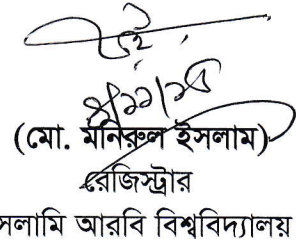 (মো. মনিরুল ইসলাম)
রেজিস্ট্রার
সলামি আরবি বিশ্ববিদ্যালয়